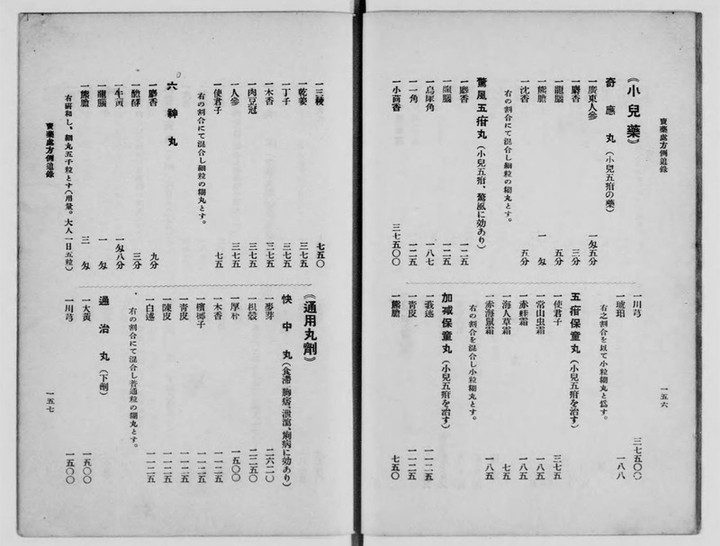 賣藥處方例追錄
一五六
《小兒藥》
奇應丸(小兒五疳の藥)
一廣東人參 一匁五分
一麝香 三分
一龍腦 五分
一熊膽 一匁
一沈香 五分
右の割合にて混合し細粒の糊丸とす。
驚風五疳丸(小兒五疳、驚風に効あり)
一麝香 一二五
一龍腦 一二五
一烏犀角 一八七
一一角 一二五
一小茴香 三七五〇〇
一川芎 三七五〇〇
一琥珀 一八八
右之割合を以て小粒糊丸と爲す。
五疳保童丸(小兒五疳を治す)
一使君子 三七五
一常山虫霜 一八五
一赤蛙霜 一八五
一海人草霜 七五
一赤海鼠霜 一八五
右の割合を混合し小粒糊丸とす。
加減保童丸(小兒五疳を治す)
一莪朮 一一二五
一青皮 一一二五
一熊膽 七五〇
一三稜 七五〇
一乾姜 三七五
一丁子 三七五
一木香 三七五
一肉豆冠 三七五
一人參 三七五
一使君子 七五
右の割合にて混合し細粒の糊丸とす。
六神丸
一麝香 九分
一蟾酥 三分
一牛黃 一匁八分
一龍腦 一匁
一熊膽 三匁
右研和し、細丸五千粒とす(用量。大人一日五粒)
賣藥處方例追錄
《通用丸劑》
快中丸(食滯、胸痞、泄瀉、痢病に効あり)
一麥芽 二六二〇
一枳殼 二二五〇
一厚朴 一五〇〇
一木香 一一二五
一檳榔子 一一二五
一靑皮 一一二五
一陳皮 一一二五
一白朮 一一二五
右の割合にて混合し普通粒の糊丸とす。
通治丸(下劑)
一大黃 一五〇〇
一川芎 一五〇〇
一五七